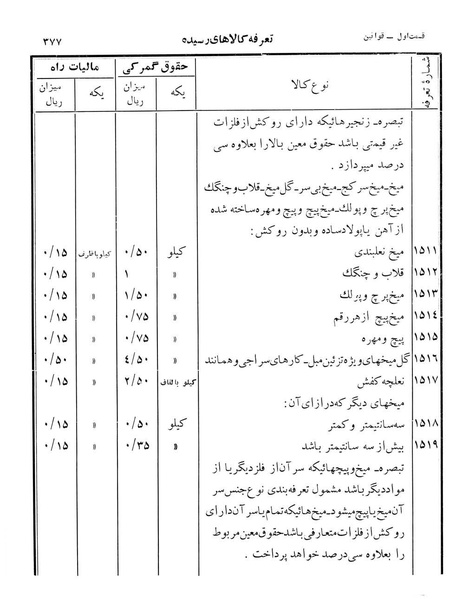 قسمت اول ــ قوانین
تعرفه کالاهای رسیده
۳۷۷
شمارهٔ تعرفه
نوع کالا
حقوق گمرکی
مالیات راه
یکه
میزان ریال
یکه
میزان ریال
تبصره ــ زنجیرهائیکه دارای روکش از فلزات
غیر قیمتی باشد حقوق معین بالا را بعلاوه سی
درصد میپردازد .
میخ ــ میخ سر کج ــ میخ بی سر ــ گل میخ ــ قلاب و چنگک
میخ پرچ و پولک ــ میخ پیچ و پیچ و مهره ساخته شده
از آهن یا پولاد ساده و بدون روکش :
۱۵۱۱ میخ نعلبندی کیلو ۰/۵۰ کیلو با ظرف ۰/۱۵
۱۵۱۲ قلاب و چنگک » ۱ » ۰/۱۵
۱۵۱۳ میخ پرچ و پولک » ۱/۵۰ » ۰/۱۵
۱۵۱۴ میخ پیچ از هر رقم » ۰/۷۵ » ۰/۱۵
۱۵۱۵ پیچ و مهره » ۰/۷۵ » ۰/۱۵
۱۵۱۶ گل میخهای ویژه تزئین مبل ــ کارهای سراجی و همانند » ۴/۵۰ » ۰/۵۰
۱۵۱۷ نعلچه کفش کیلو با لفاف ۲/۵۰ » ۰/۱۵
میخهای دیگر که درازای آن :
۱۵۱۸ سه سانتیمتر و کمتر کیلو ۰/۵۰ » ۰/۱۵
۱۵۱۹ بیش از سه سانتیمتر باشد » ۰/۳۵ » ۰/۱۵
تبصره ــ میخ و پیچهائیکه سر آن از فلز دیگر یا از
مواد دیگر باشد مشمول تعرفه بندی نوع جنس سر
آن میخ یا پیچ میشود ــ میخ هائیکه تمام یا سر آن دارای
روکش از فلزات متعارفی باشد حقوق معین مربوط
را بعلاوه سی درصد خواهد پرداخت .